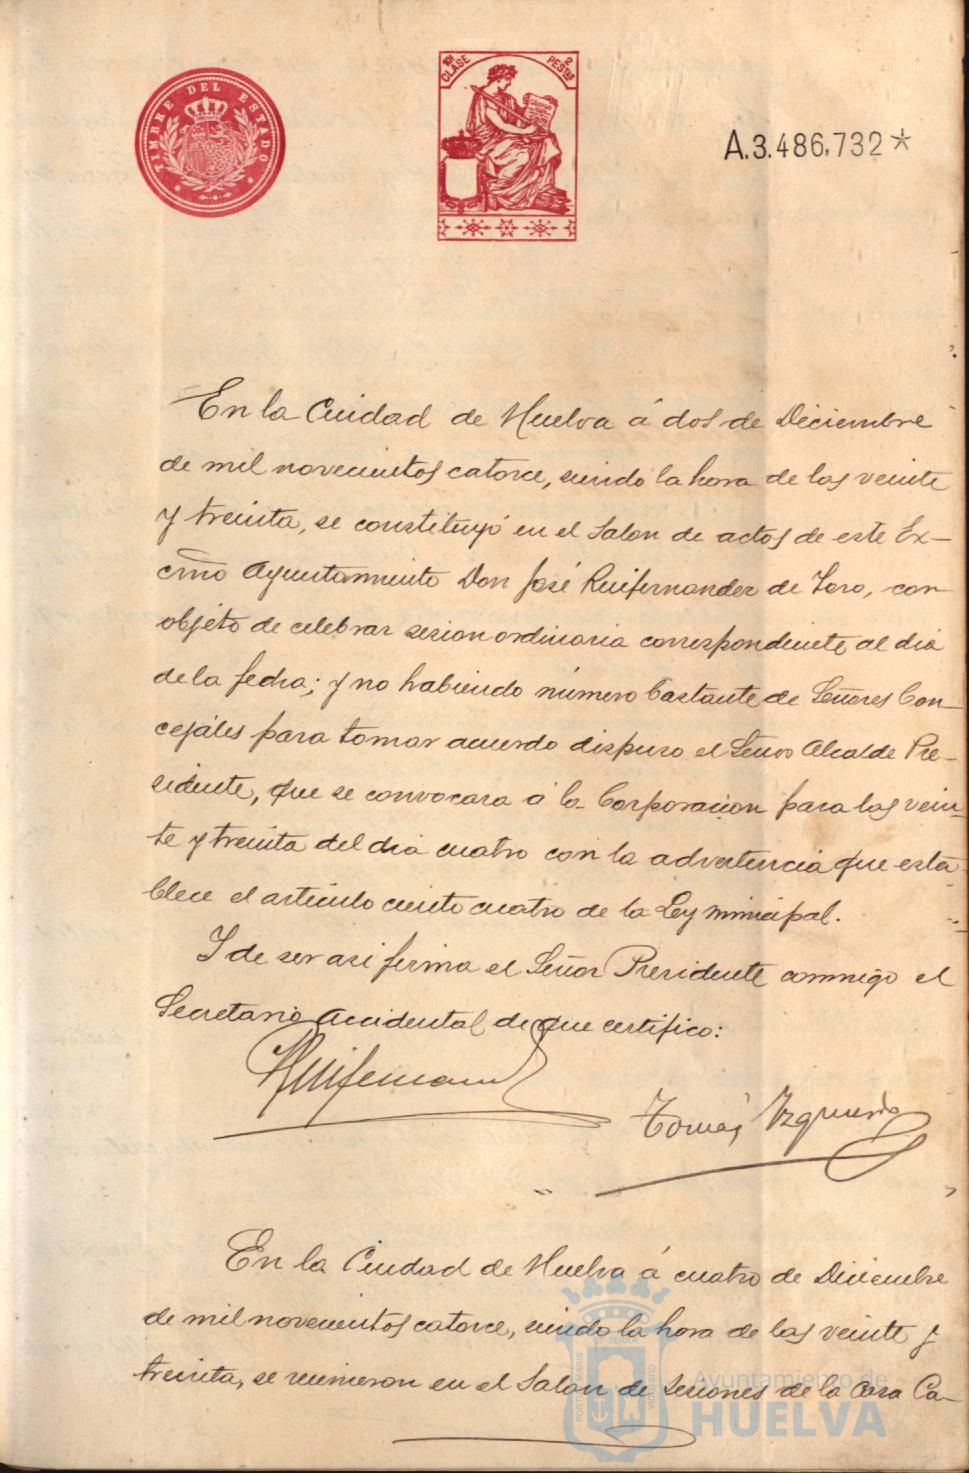 TIMBRE DEL ESTADO
10ª CLASE
2 PESTAS
A.3.486,732*
En la Ciudad de Huelva á dos de Diciembre
de mil novecientos catorce, siendo la hora de las veinte
y treinta, se constituyó en el Salon de actos de este Ex-
cmo Ayuntamiento Don José Ruifernandez de Toro, con
objeto de celebrar sesion ordinaria correspondiente al dia
de la fecha; y no habiendo número bastante de Señores Con-
cejáles para tomar acuerdo dispuso el Señor Alcalde Pre-
sidente, que se convocara á la Corporacion para las vein-
te y treinta del dia cuatro con la advertencia que esta-
blece el articulo ciento cuatro de la Ley municipal.
Y de ser asi firma el Señor Presidente conmigo el
Secretario Accidental de que certifico:
Ruifernandez
Tomás Izquierdo
En la Ciudad de Huelva á cuatro de Diciembre
de mil novecientos catorce, siendo la hora de las veinte y
treinta, se reunieron en el Salon de Sesiones de la Casa Ca-
Ayuntamiento de
HUELVA